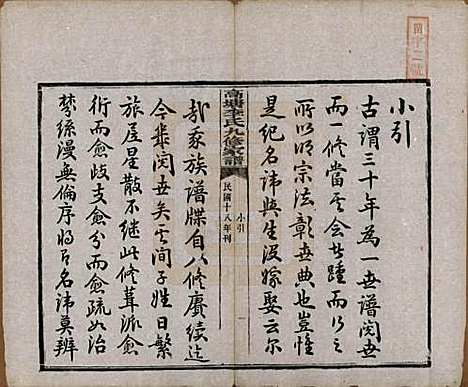 小引
古謂三十年為一世譜閱世
而一修當其會者踵而行之
所以明宗法彰世典也豈惟
是紀名諱與生沒嫁娶云爾
高塘李氏九修家譜
小引
民國十八年刊
哉我家族譜牒自八修賡續迄
今幾閱世矣其間子姓日繁
旅居星散不繼此修葺派愈
衍而愈歧支愈分而愈疏如治
棼絲漫無倫序將昭名諱莫辨